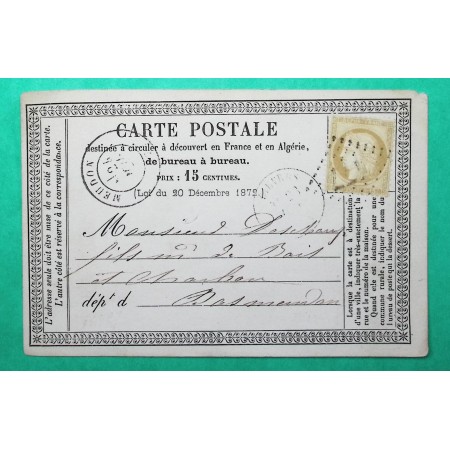 CARTE POSTALE
destinée à circuler à découvert en France et en Algérie,
de bureau à bureau.
PRIX : 15 CENTIMES.
(Loi du 20 Décembre 1872.)
MEUDON
Monsieur
fils md de Bois
et charbon
dépt d
L'adresse seule doit être mise de ce côté de la carte.
L'autre côté est réservé à la correspondance.
Lorsque la carte est à destination
d'une ville, indiquer très-exactement la
rue et le numéro de la maison.
Quand elle est destinée pour une
commune rurale, indiquer le
bureau de poste qui la dessert.